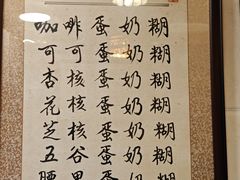 咖啡蛋奶糊
可可蛋奶糊
杏核蛋奶糊
花核蛋奶糊
芝核蛋奶糊
五谷蛋奶糊
腰果蛋奶糊